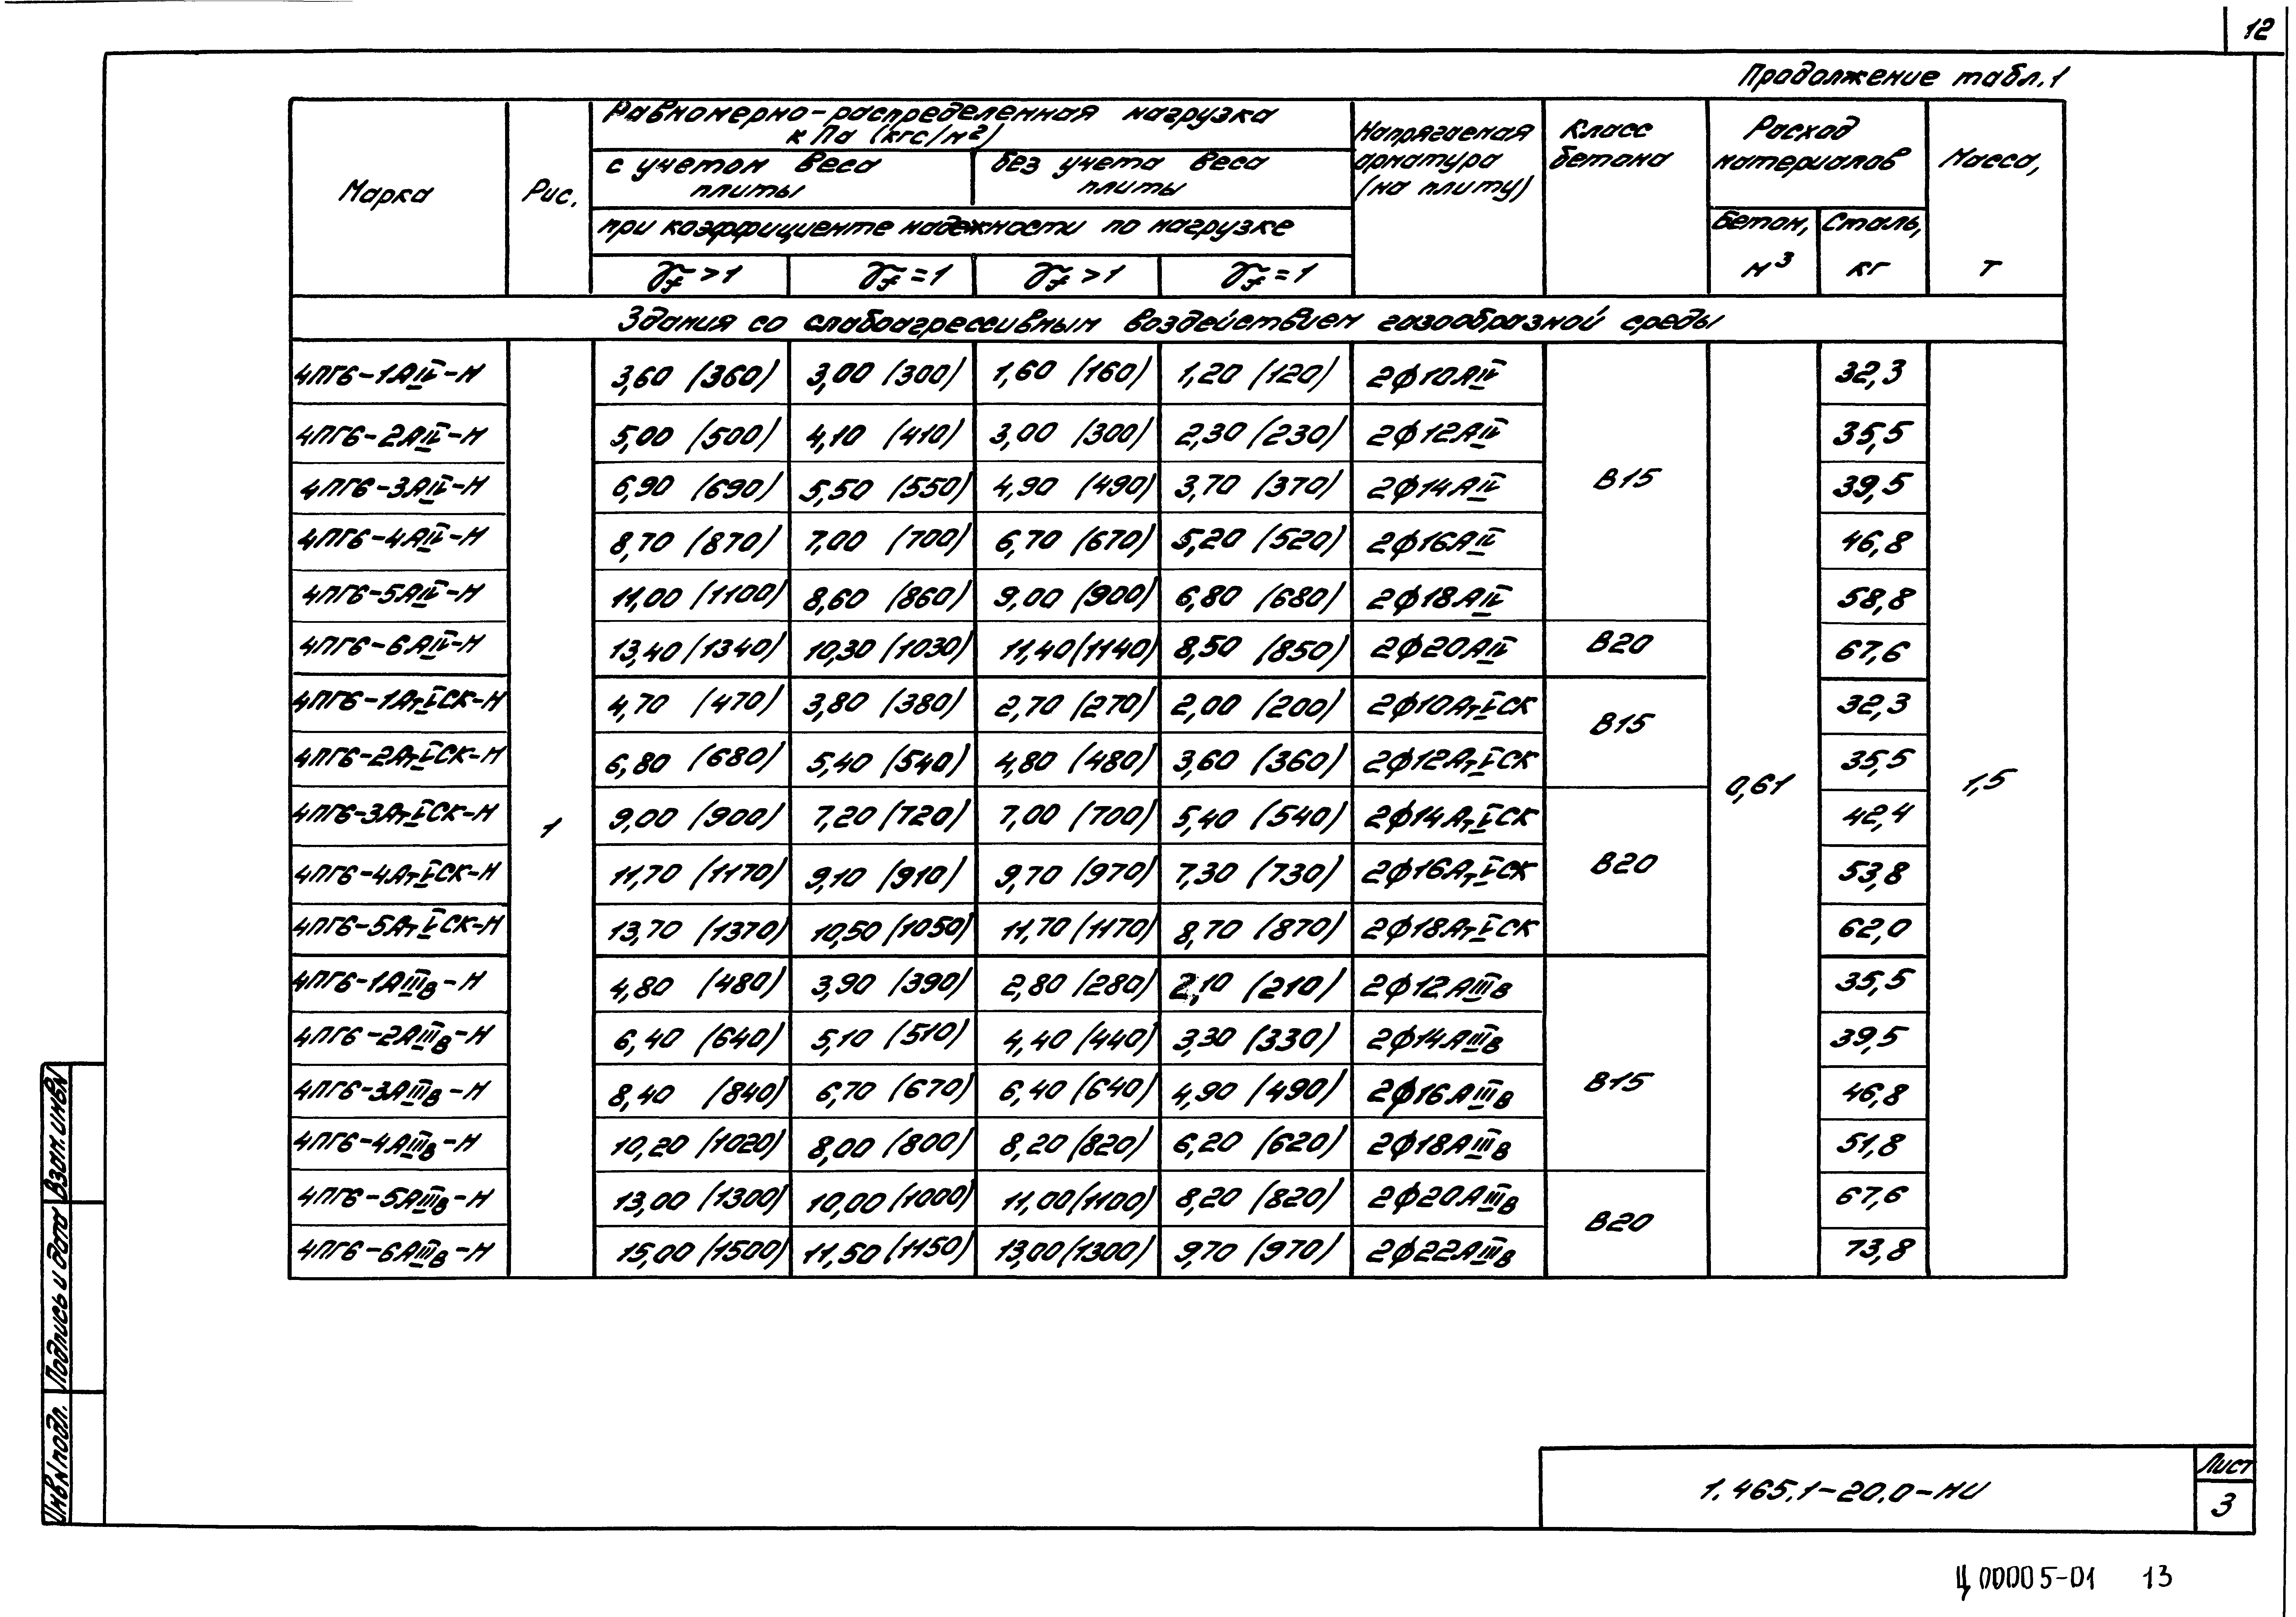 12
Продолжение табл.1
Марка
Рис.
Равномерно-распределенная нагрузка
кПа (кгс/м²)
с учетом веса плиты
без учета веса плиты
при коэффициенте надежности по нагрузке
γf >1 γf =1 γf >1 γf =1
Напрягаемая арматура (на плиту)
Класс бетона
Расход материалов
Бетон, м³
Сталь, кг
Масса, т
Здания со слабоагрессивным воздействием газообразной среды
4ПГ6-1АIV-Н 3,60 (360) 3,00 (300) 1,60 (160) 1,20 (120) 2ф10АIV 32,3
4ПГ6-2АIV-Н 5,00 (500) 4,10 (410) 3,00 (300) 2,30 (230) 2ф12АIV 35,5
4ПГ6-3АIV-Н 6,90 (690) 5,50 (550) 4,90 (490) 3,70 (370) 2ф14АIV В15 39,5
4ПГ6-4АIV-Н 8,70 (870) 7,00 (700) 6,70 (670) 5,20 (520) 2ф16АIV 46,8
4ПГ6-5АIV-Н 11,00 (1100) 8,60 (860) 9,00 (900) 6,80 (680) 2ф18АIV 58,8
4ПГ6-6АIV-Н 13,40 (1340) 10,30 (1030) 11,40 (1140) 8,50 (850) 2ф20АIV В20 67,6
4ПГ6-1АтVСК-Н 4,70 (470) 3,80 (380) 2,70 (270) 2,00 (200) 2ф10АтVСК В15 32,3
4ПГ6-2АтVСК-Н 6,80 (680) 5,40 (540) 4,80 (480) 3,60 (360) 2ф12АтVСК 35,5
4ПГ6-3АтVСК-Н 1 9,00 (900) 7,20 (720) 7,00 (700) 5,40 (540) 2ф14АтVСК 0,61 42,4 1,5
4ПГ6-4АтVСК-Н 11,70 (1170) 9,10 (910) 9,70 (970) 7,30 (730) 2ф16АтVСК В20 53,8
4ПГ6-5АтVСК-Н 13,70 (1370) 10,50 (1050) 11,70 (1170) 8,70 (870) 2ф18АтVСК 62,0
4ПГ6-1АIIIв-Н 4,80 (480) 3,90 (390) 2,80 (280) 2,10 (210) 2ф12АIIIв 35,5
4ПГ6-2АIIIв-Н 6,40 (640) 5,10 (510) 4,40 (440) 3,30 (330) 2ф14АIIIв 39,5
4ПГ6-3АIIIв-Н 8,40 (840) 6,70 (670) 6,40 (640) 4,90 (490) 2ф16АIIIв В15 46,8
4ПГ6-4АIIIв-Н 10,20 (1020) 8,00 (800) 8,20 (820) 6,20 (620) 2ф18АIIIв 51,8
4ПГ6-5АIIIв-Н 13,00 (1300) 10,00 (1000) 11,00 (1100) 8,20 (820) 2ф20АIIIв В20 67,6
4ПГ6-6АIIIв-Н 15,00 (1500) 11,50 (1150) 13,00 (1300) 9,70 (970) 2ф22АIIIв 73,8
Взам.инв.N
Подпись и дата
Инв.Nподл.
1.465.1-20.0-НИ
Лист
3
Ц00005-01 13